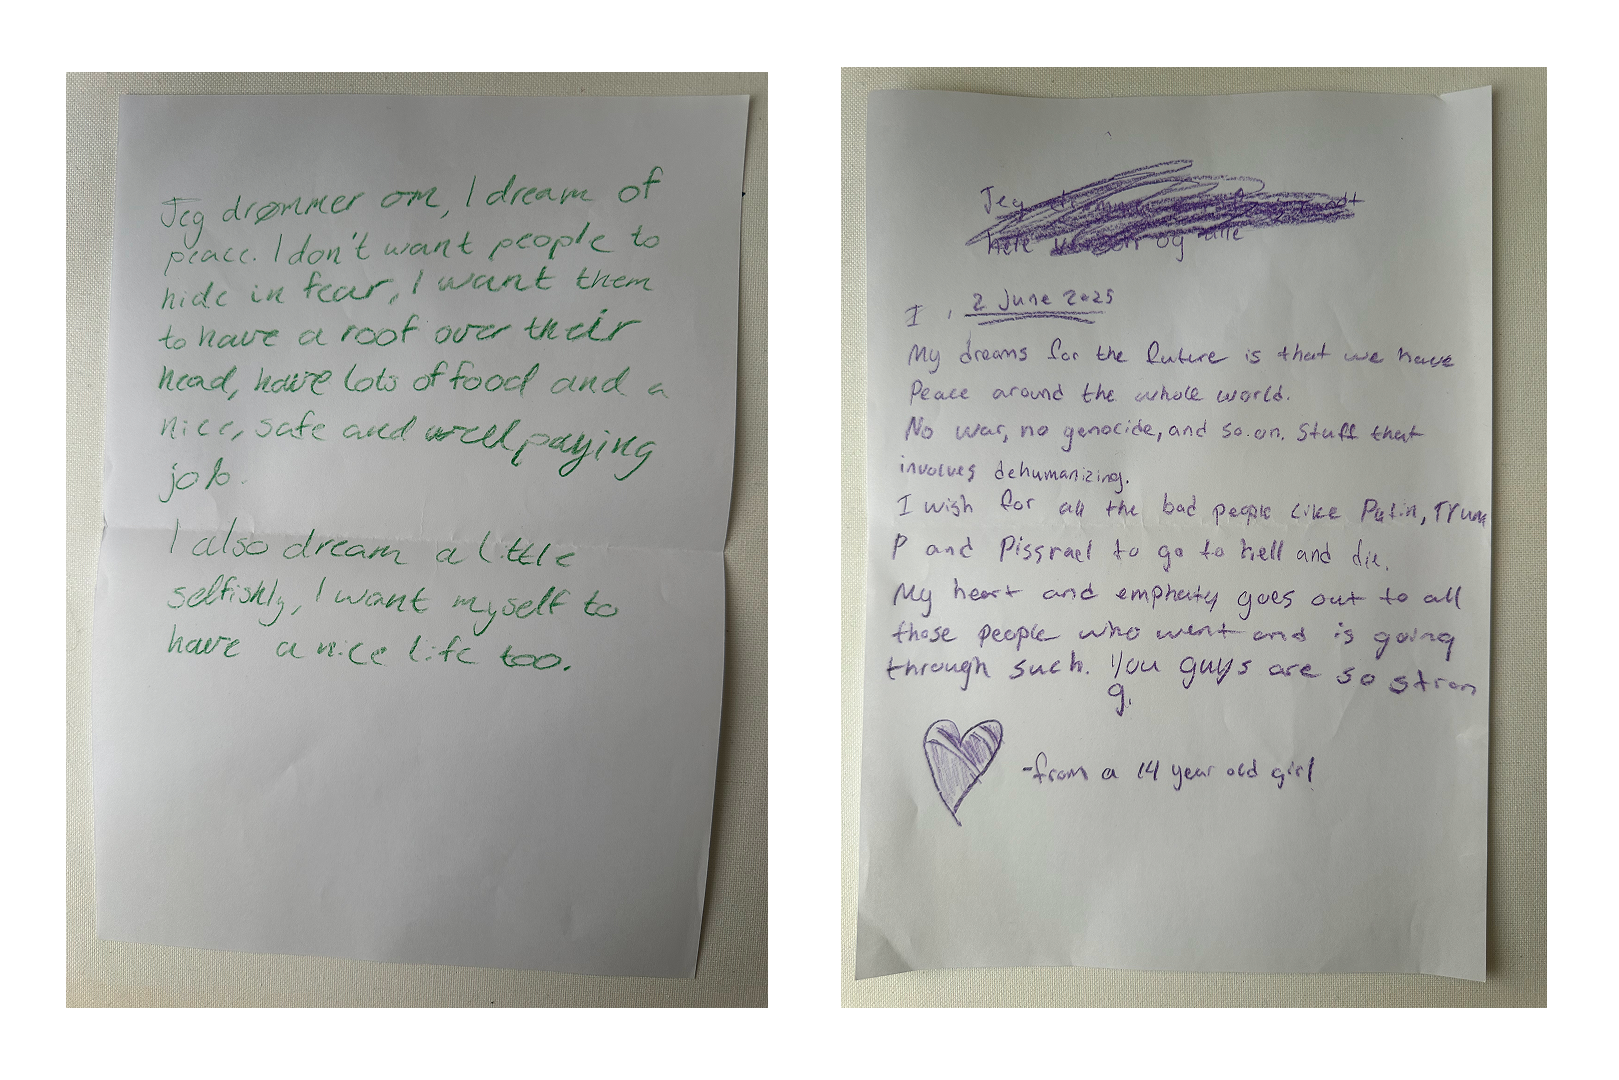 Jeg drømmer om, I dream of
peace. I don't want people to
hide in fear, I want them
to have a roof over their
head, have lots of food and a
nice, safe and well paying
job.
I also dream a little
selfishly, I want myself to
have a nice life too.
Jeg
hele og alle
I , 2 June 2025
My dreams for the future is that we have
Peace around the whole world.
No war, no genocide, and so.on. Stuff that
involves dehumanizing.
I wish for all the bad people like Putin, Trum
P and Pissrael to go to hell and die.
My heart and emphaty goes out to all
those people who went and is going
through such. You guys are so stron
g.
-from a 14 year old girl